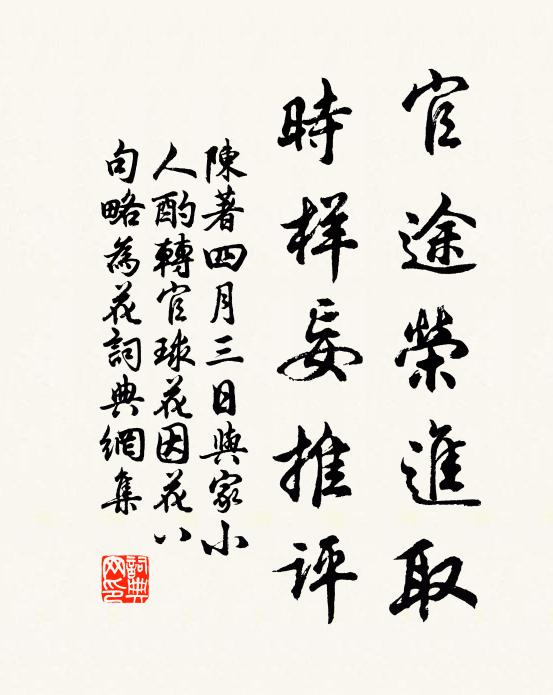 官途榮進取
時样妄推評
陳著四月三日與家小
人酌轉官球花因花八
句略為花詞典網集
詞典网印